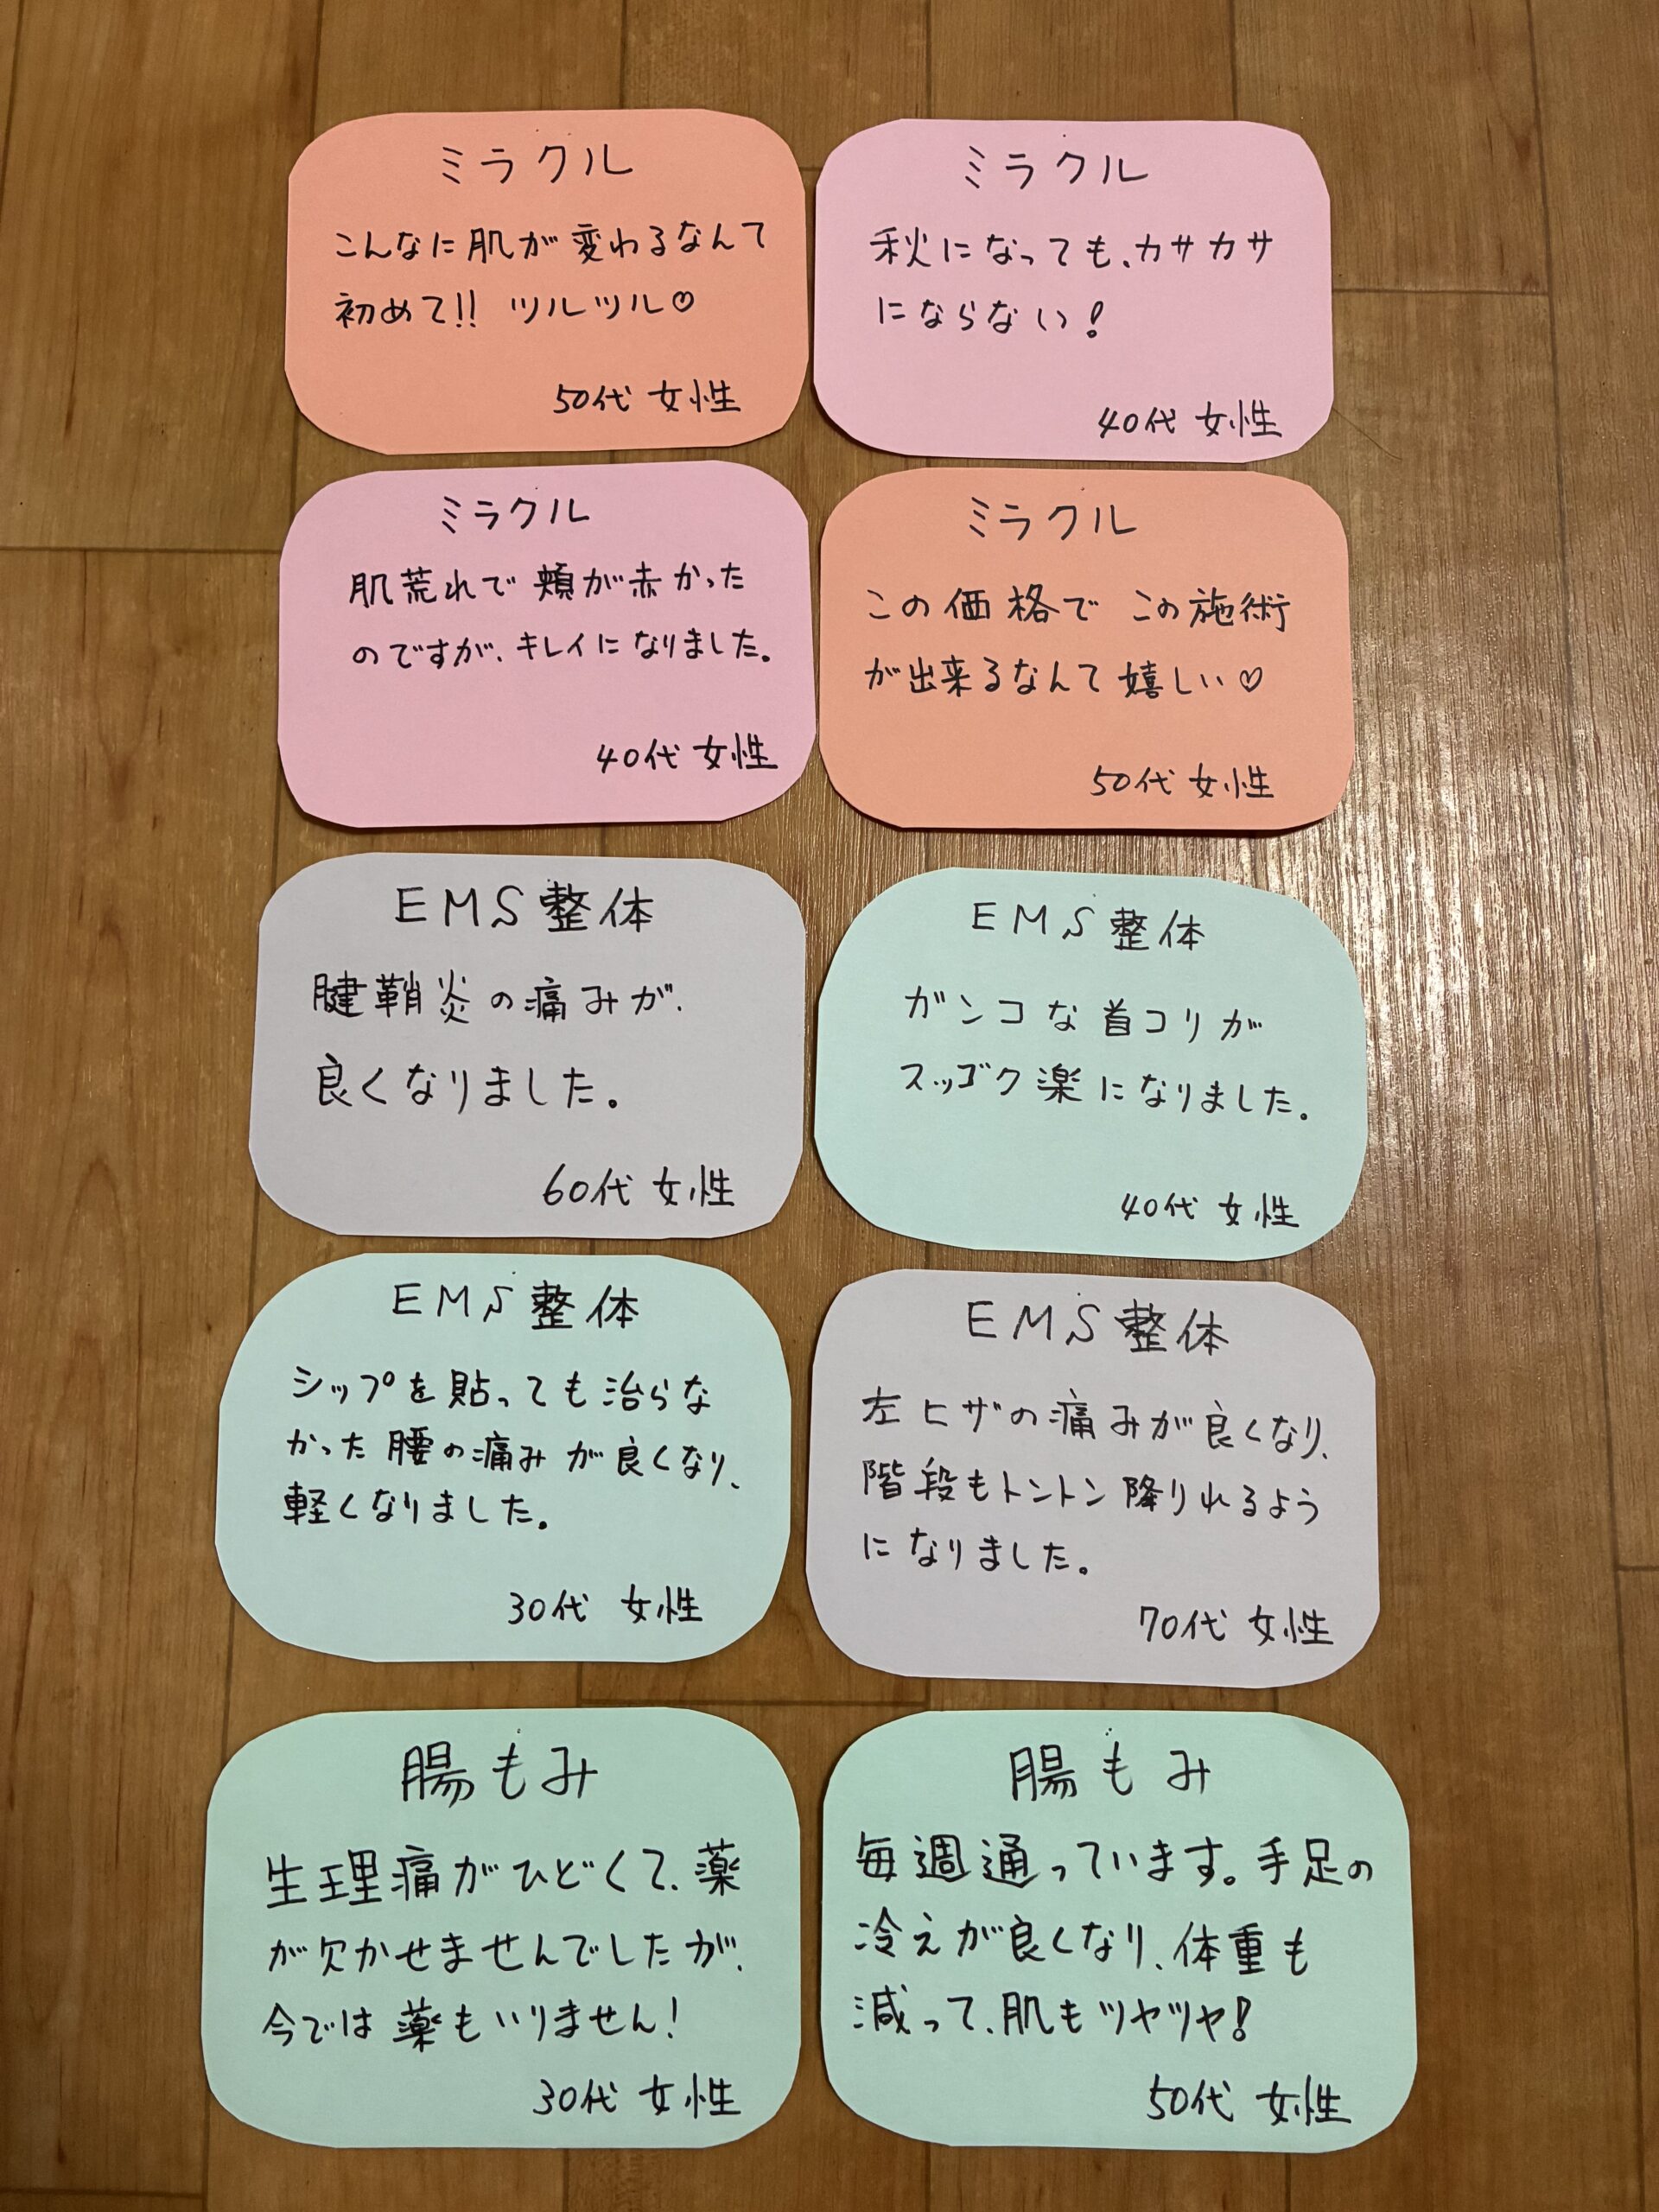 ミラクル
こんなに肌が変わるなんて
初めて!! ツルツル♡
50代 女性
ミラクル
秋になっても、カサカサ
にならない!
40代 女性
ミラクル
肌荒れで頬が赤かった
のですが、キレイになりました。
40代 女性
ミラクル
この価格でこの施術
が出来るなんて嬉しい♡
50代 女性
EMS整体
腱鞘炎の痛みが、
良くなりました。
60代 女性
EMS整体
ガンコな首コリが
スッゴク楽になりました。
40代 女性
EMS整体
シップを貼っても治らな
かった腰の痛みが良くなり、
軽くなりました。
30代 女性
EMS整体
左ヒザの痛みが良くなり、
階段もトントン降りれるよう
になりました。
70代 女性
腸もみ
生理痛がひどくて、薬
が欠かせませんでしたが、
今では薬もいりません!
30代 女性
腸もみ
毎週通っています。手足の
冷えが良くなり、体重も
減って、肌もツヤツヤ!
50代 女性